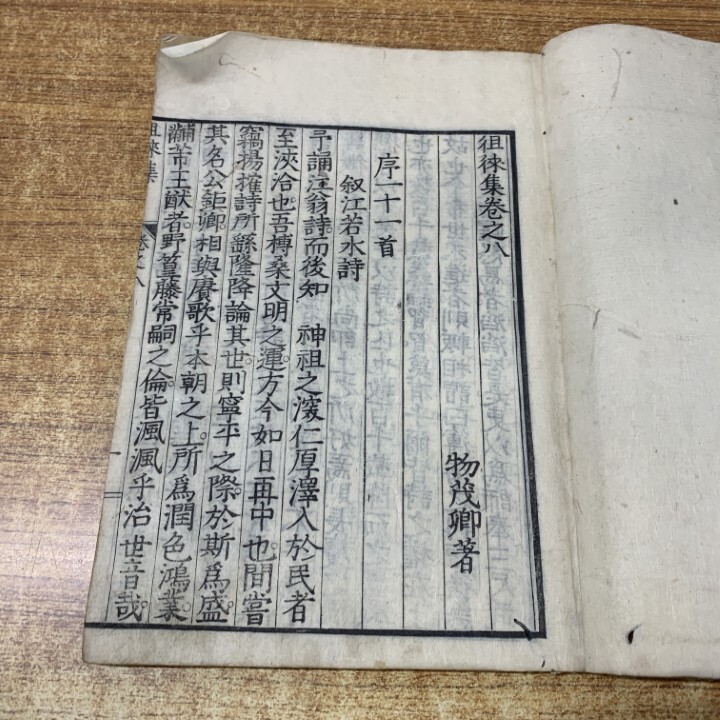 徂徠集卷之八
物茂卿著
序一十一首
叙江若水詩
予誦江翁詩而後知　神祖之深仁厚澤入於民者
至浹洽也吾榑桑文明之運方今如日再中也間嘗
竊揚搉詩所繇隆降論其世則寧平之際於斯爲盛
其名公鉅卿相與賡歌乎本朝之上所爲潤色鴻業
黼芾王猷者野篁藤常嗣之倫皆渢渢乎治世音哉
徂徠集
卷之八
一